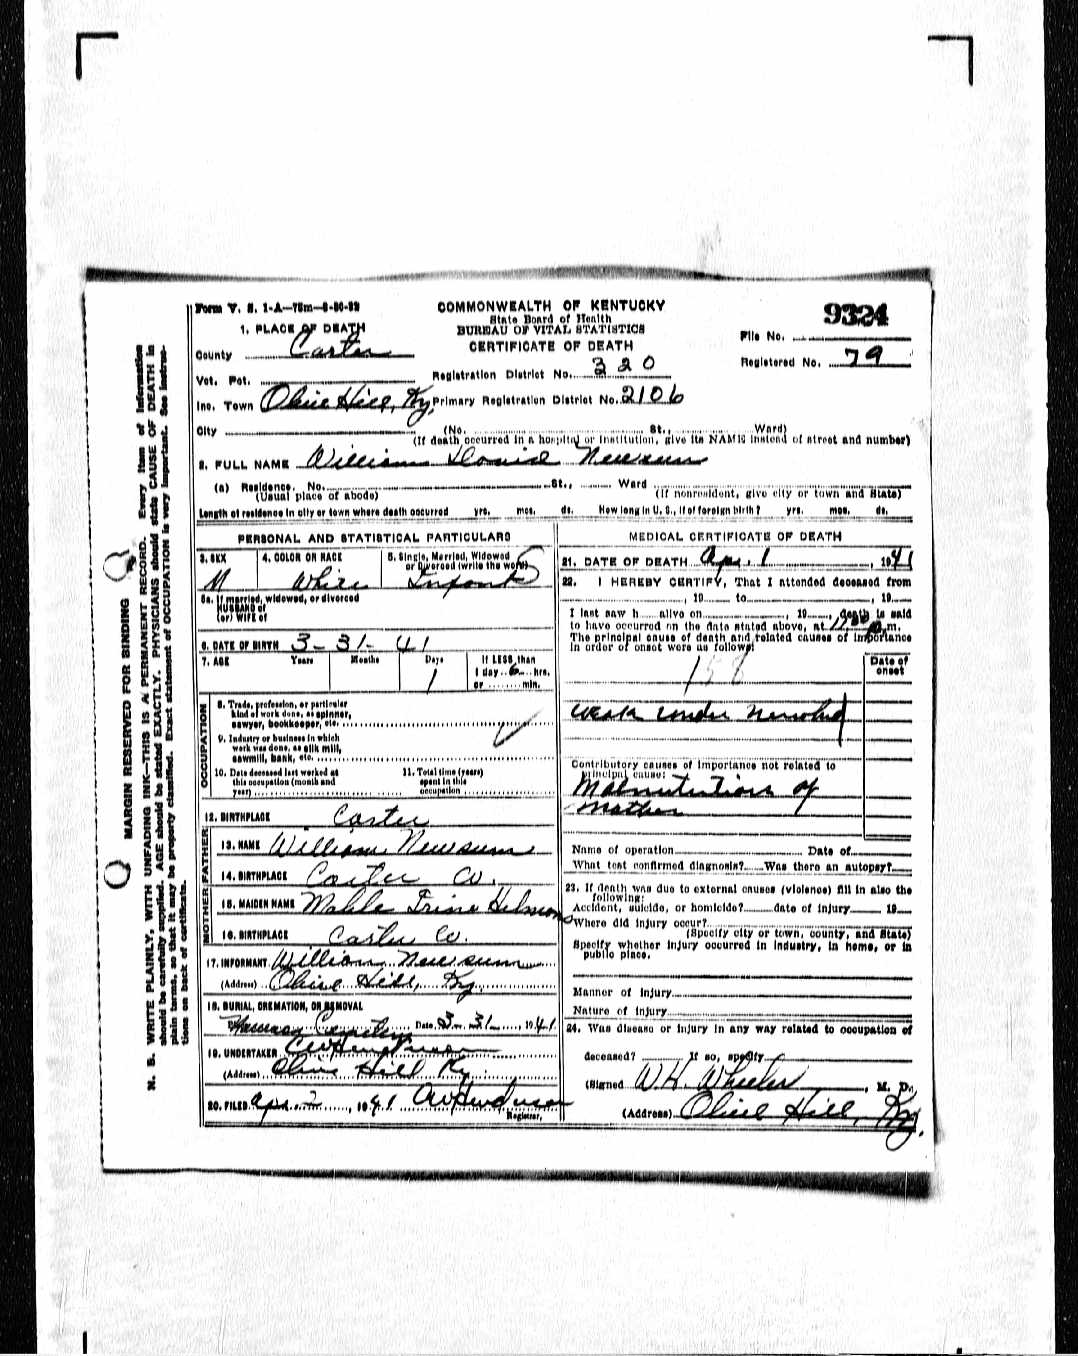 Form V. S. 1-A—75m—8-30-32
COMMONWEALTH OF KENTUCKY
State Board of Health
BUREAU OF VITAL STATISTICS
CERTIFICATE OF DEATH
9324
File No.
Registered No. 79
1. PLACE OF DEATH
County Carter
Vot. Pct.
Registration District No. 320
Inc. Town Olive Hill, Ky.
Primary Registration District No. 2106
City (No. St., Ward)
(If death occurred in a hospital or institution, give its NAME instead of street and number)
2. FULL NAME William Newsum
(a) Residence. No. St., Ward
(Usual place of abode) (If nonresident, give city or town and State)
Length of residence in city or town where death occurred yrs. mos. ds. How long in U. S., if of foreign birth? yrs. mos. ds.
PERSONAL AND STATISTICAL PARTICULARS
3. SEX
M
4. COLOR OR RACE
White
5. Single, Married, Widowed
or Divorced (write the word)
Infant
5a. If married, widowed, or divorced
HUSBAND of
(or) WIFE of
6. DATE OF BIRTH 3-31-41
7. AGE Years Months Days
1
If LESS than
1 day 6 hrs.
or min.
OCCUPATION
8. Trade, profession, or particular
kind of work done, as spinner,
sawyer, bookkeeper, etc.
9. Industry or business in which
work was done, as silk mill,
sawmill, bank, etc.
10. Date deceased last worked at
this occupation (month and
year)
11. Total time (years)
spent in this
occupation
12. BIRTHPLACE Carter
FATHER
13. NAME William Newsum
14. BIRTHPLACE Carter Co.
MOTHER
15. MAIDEN NAME Irine
16. BIRTHPLACE Carter Co.
17. INFORMANT William Newsum
(Address) Olive Hill, Ky.
18. BURIAL, CREMATION, OR REMOVAL
Cemetery Date 3-31-, 1941
19. UNDERTAKER
(Address) Olive Hill Ky.
20. FILED Apr. 2, 1941
Registrar.
MEDICAL CERTIFICATE OF DEATH
21. DATE OF DEATH Apr. 1, 1941
22. I HEREBY CERTIFY, That I attended deceased from
, 19 to , 19
I last saw h alive on , 19 , death is said
to have occurred on the date stated above, at m.
The principal cause of death and related causes of importance
in order of onset were as follows:
Date of
onset
158
Weak
Contributory causes of importance not related to
principal cause:
Malnutrition of
Mother
Name of operation Date of
What test confirmed diagnosis? Was there an autopsy?
23. If death was due to external causes (violence) fill in also the
following:
Accident, suicide, or homicide? date of injury 19
Where did injury occur?
(Specify city or town, county, and State)
Specify whether injury occurred in industry, in home, or in
public place.
Manner of Injury
Nature of Injury
24. Was disease or injury in any way related to occupation of
deceased? If so, specify
(Signed W. H. Wheeler, M. D.
(Address) Olive Hill, Ky.
MARGIN RESERVED FOR BINDING
N. B. WRITE PLAINLY, WITH UNFADING INK—THIS IS A PERMANENT RECORD. Every item of information
should be carefully supplied. AGE should be stated EXACTLY. PHYSICIANS should state CAUSE OF DEATH in
plain terms, so that it may be properly classified. Exact statement of OCCUPATION is very important. See instruc-
tions on back of certificate.